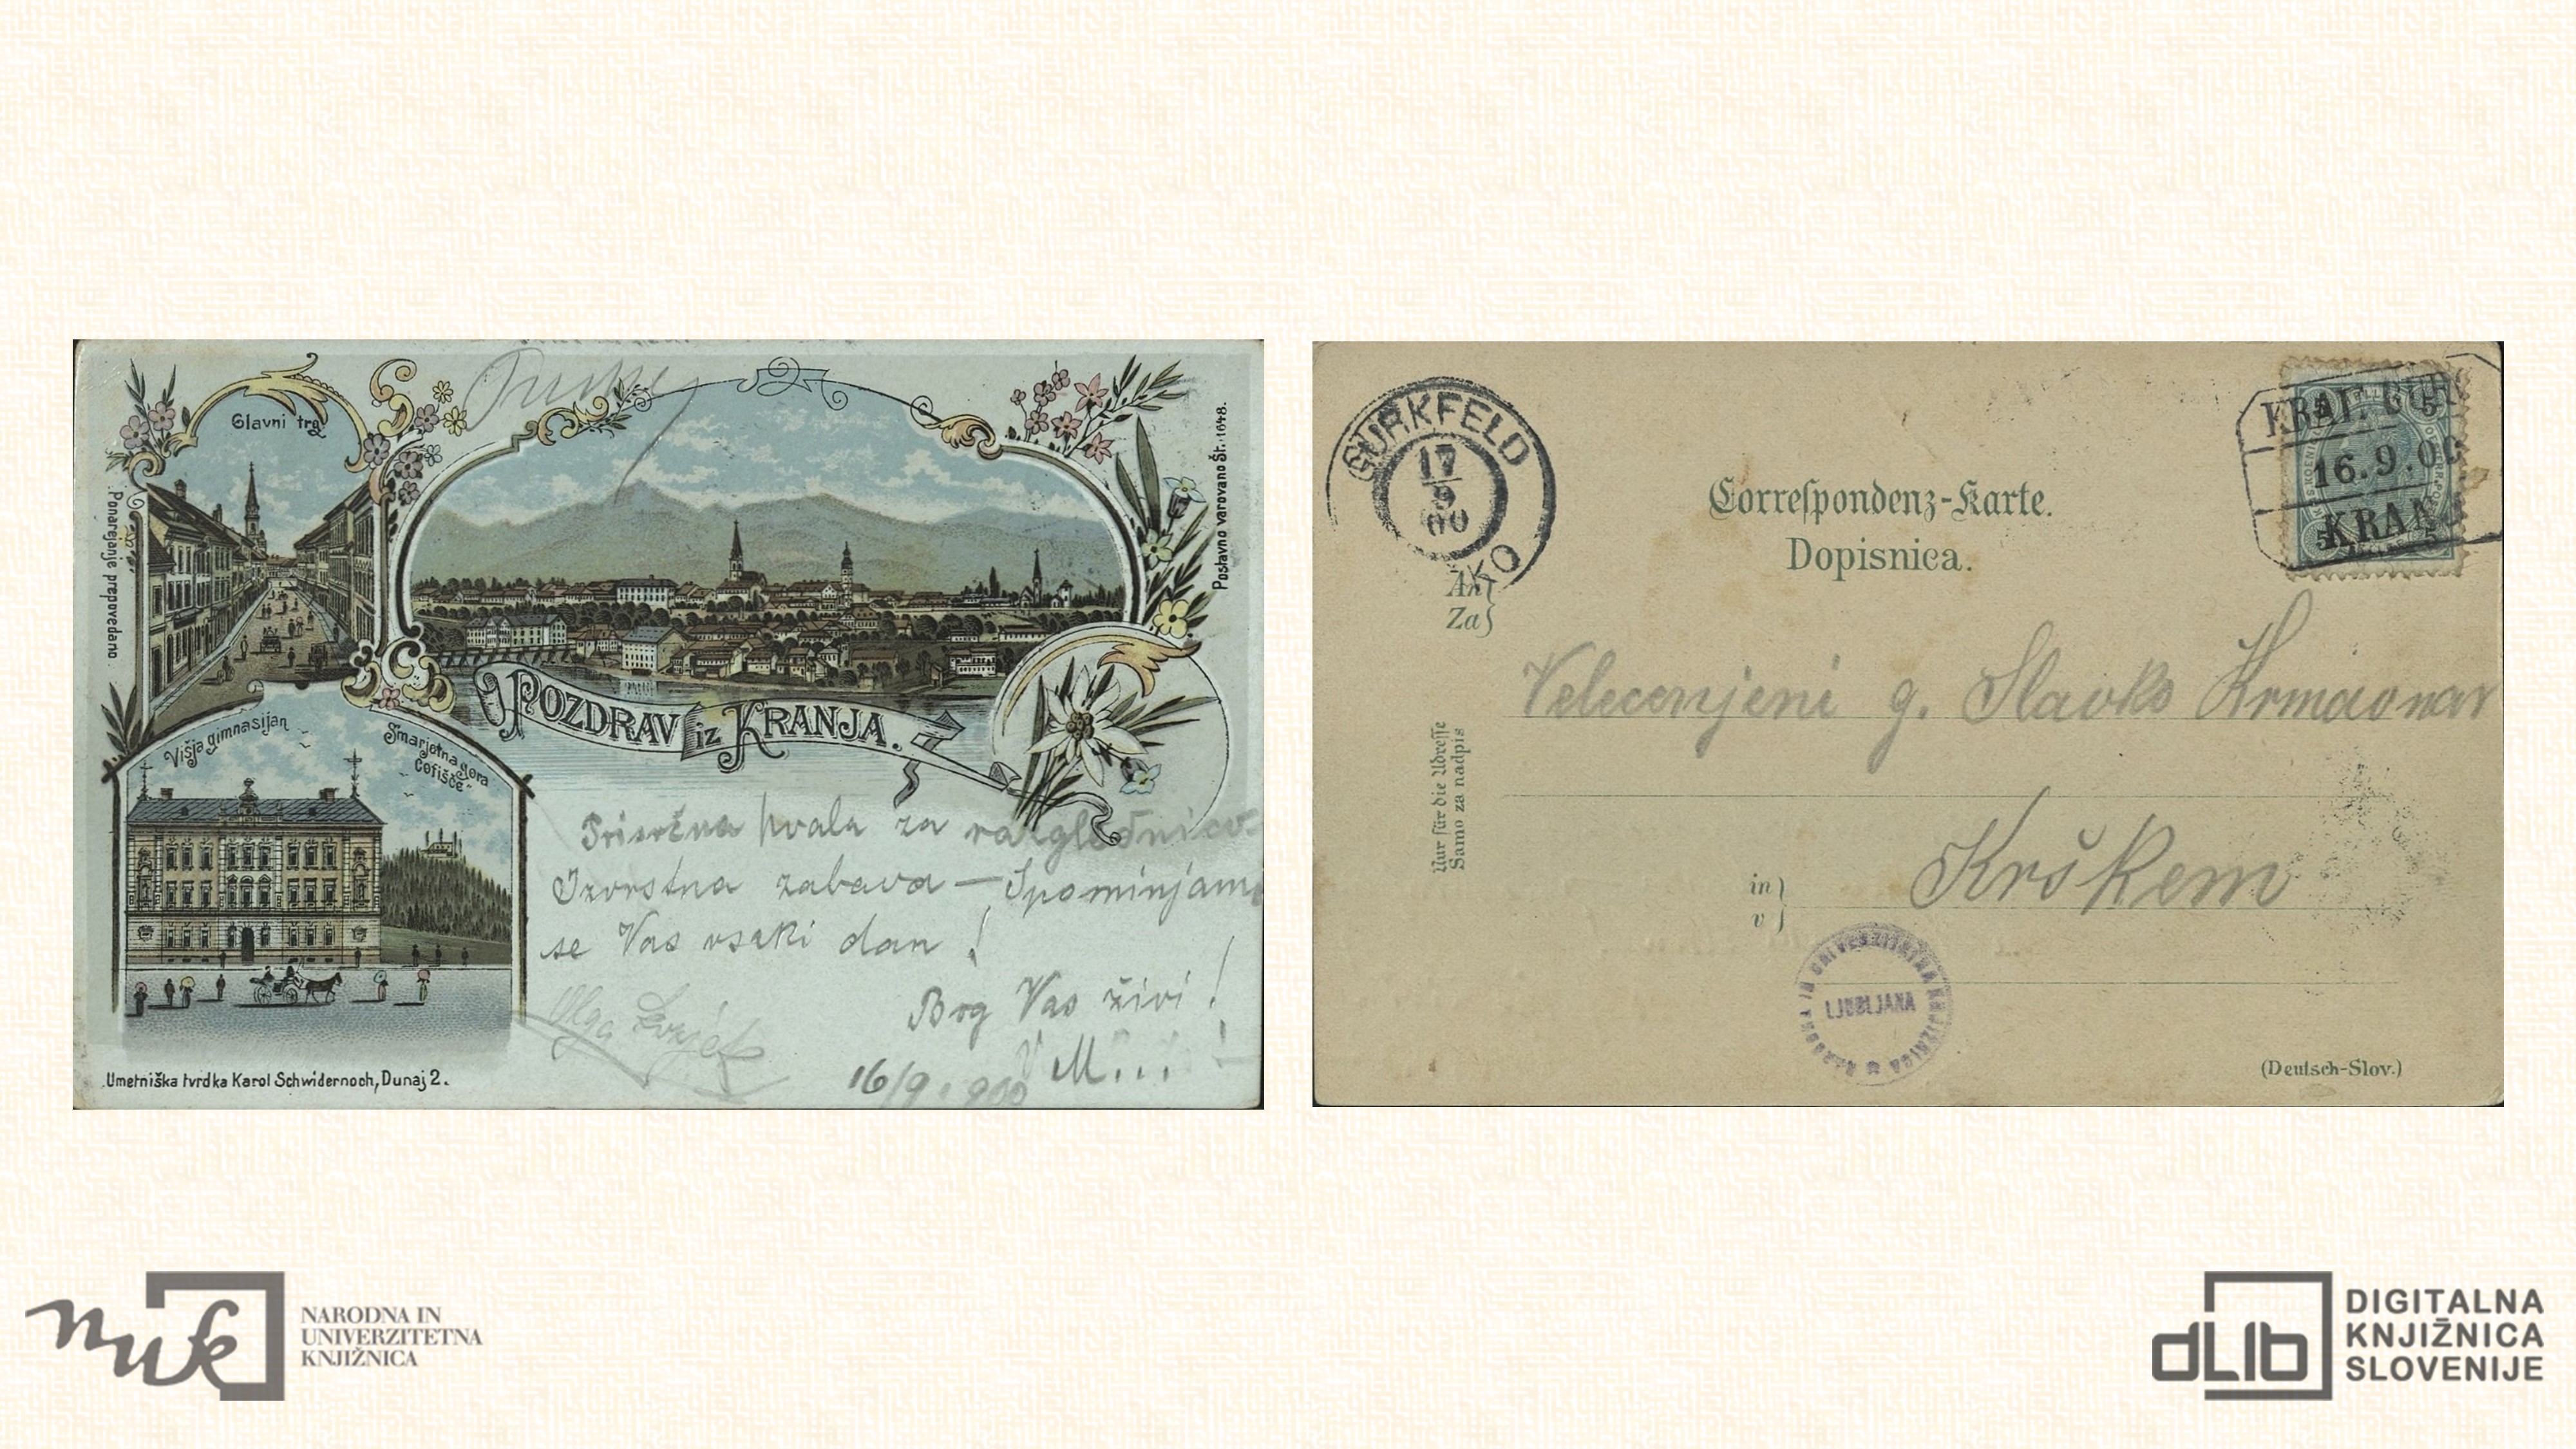 Glavni trg
Ponarejanje prepovedano.
Postavno varovano Št. 1648.
POZDRAV iz KRANJA.
Višja gimnasijan
Šmarjetna gora
Gofišče"
Prisrčna hvala za razglednico.
Izvrstna zabava — Spominjamo
se Vas vsaki dan!
Bog Vas živi!
Olga
M...
16/9. 900
Umetniška tvrdka Karol Schwidernoch, Dunaj 2.
GURKFELD
17
9
00
KRAI
16.9.00
KRAN
5 5
5 5
Correspondenz-Karte.
Dopisnica.
An
Za
Velecenjeni g. Slavko
Nur für die Adresse
Samo za nadpis
in
v
Krškem
NARODNA IN UNIVERZITETNA KNJIŽNICA
LJUBLJANA
(Deutsch-Slov.)
nuk
NARODNA IN
UNIVERZITETNA
KNJIŽNICA
dLib
DIGITALNA
KNJIŽNICA
SLOVENIJE